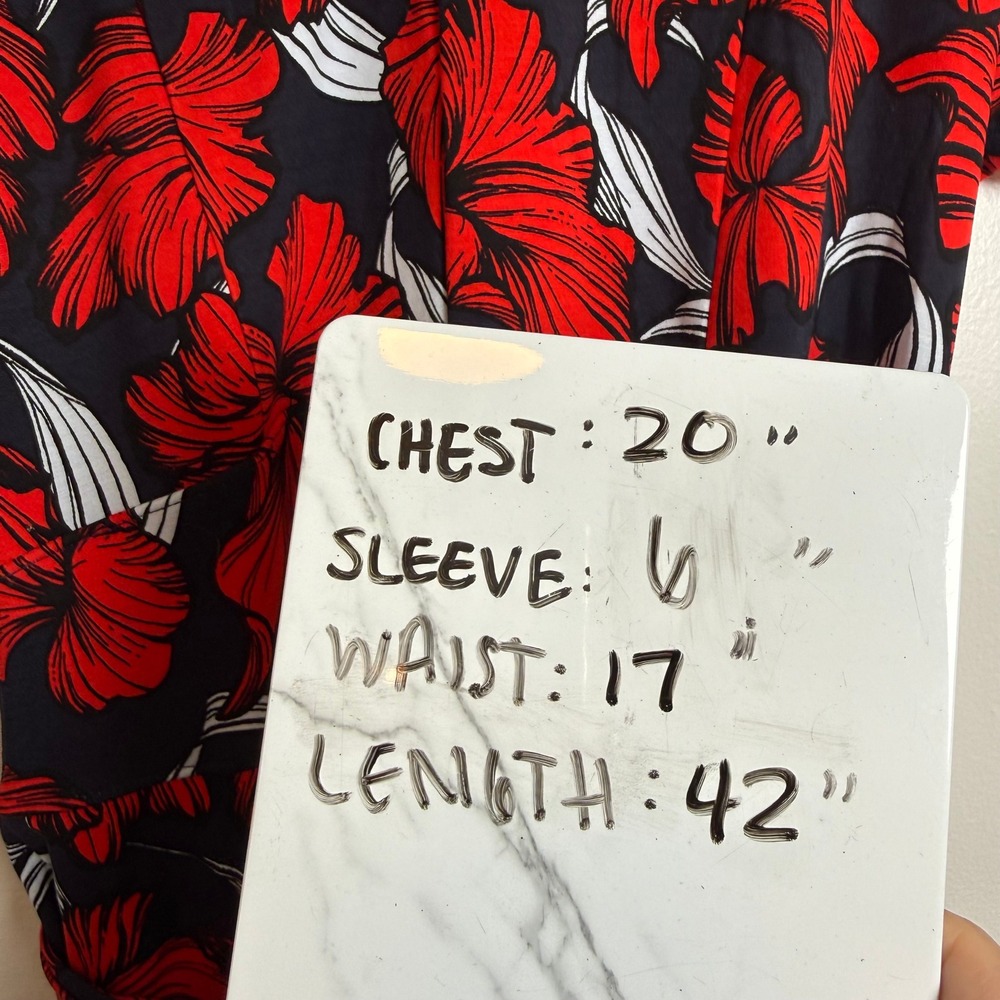 CHEST: 20"
SLEEVE: 6"
WAIST: 17"
LENGTH: 42"